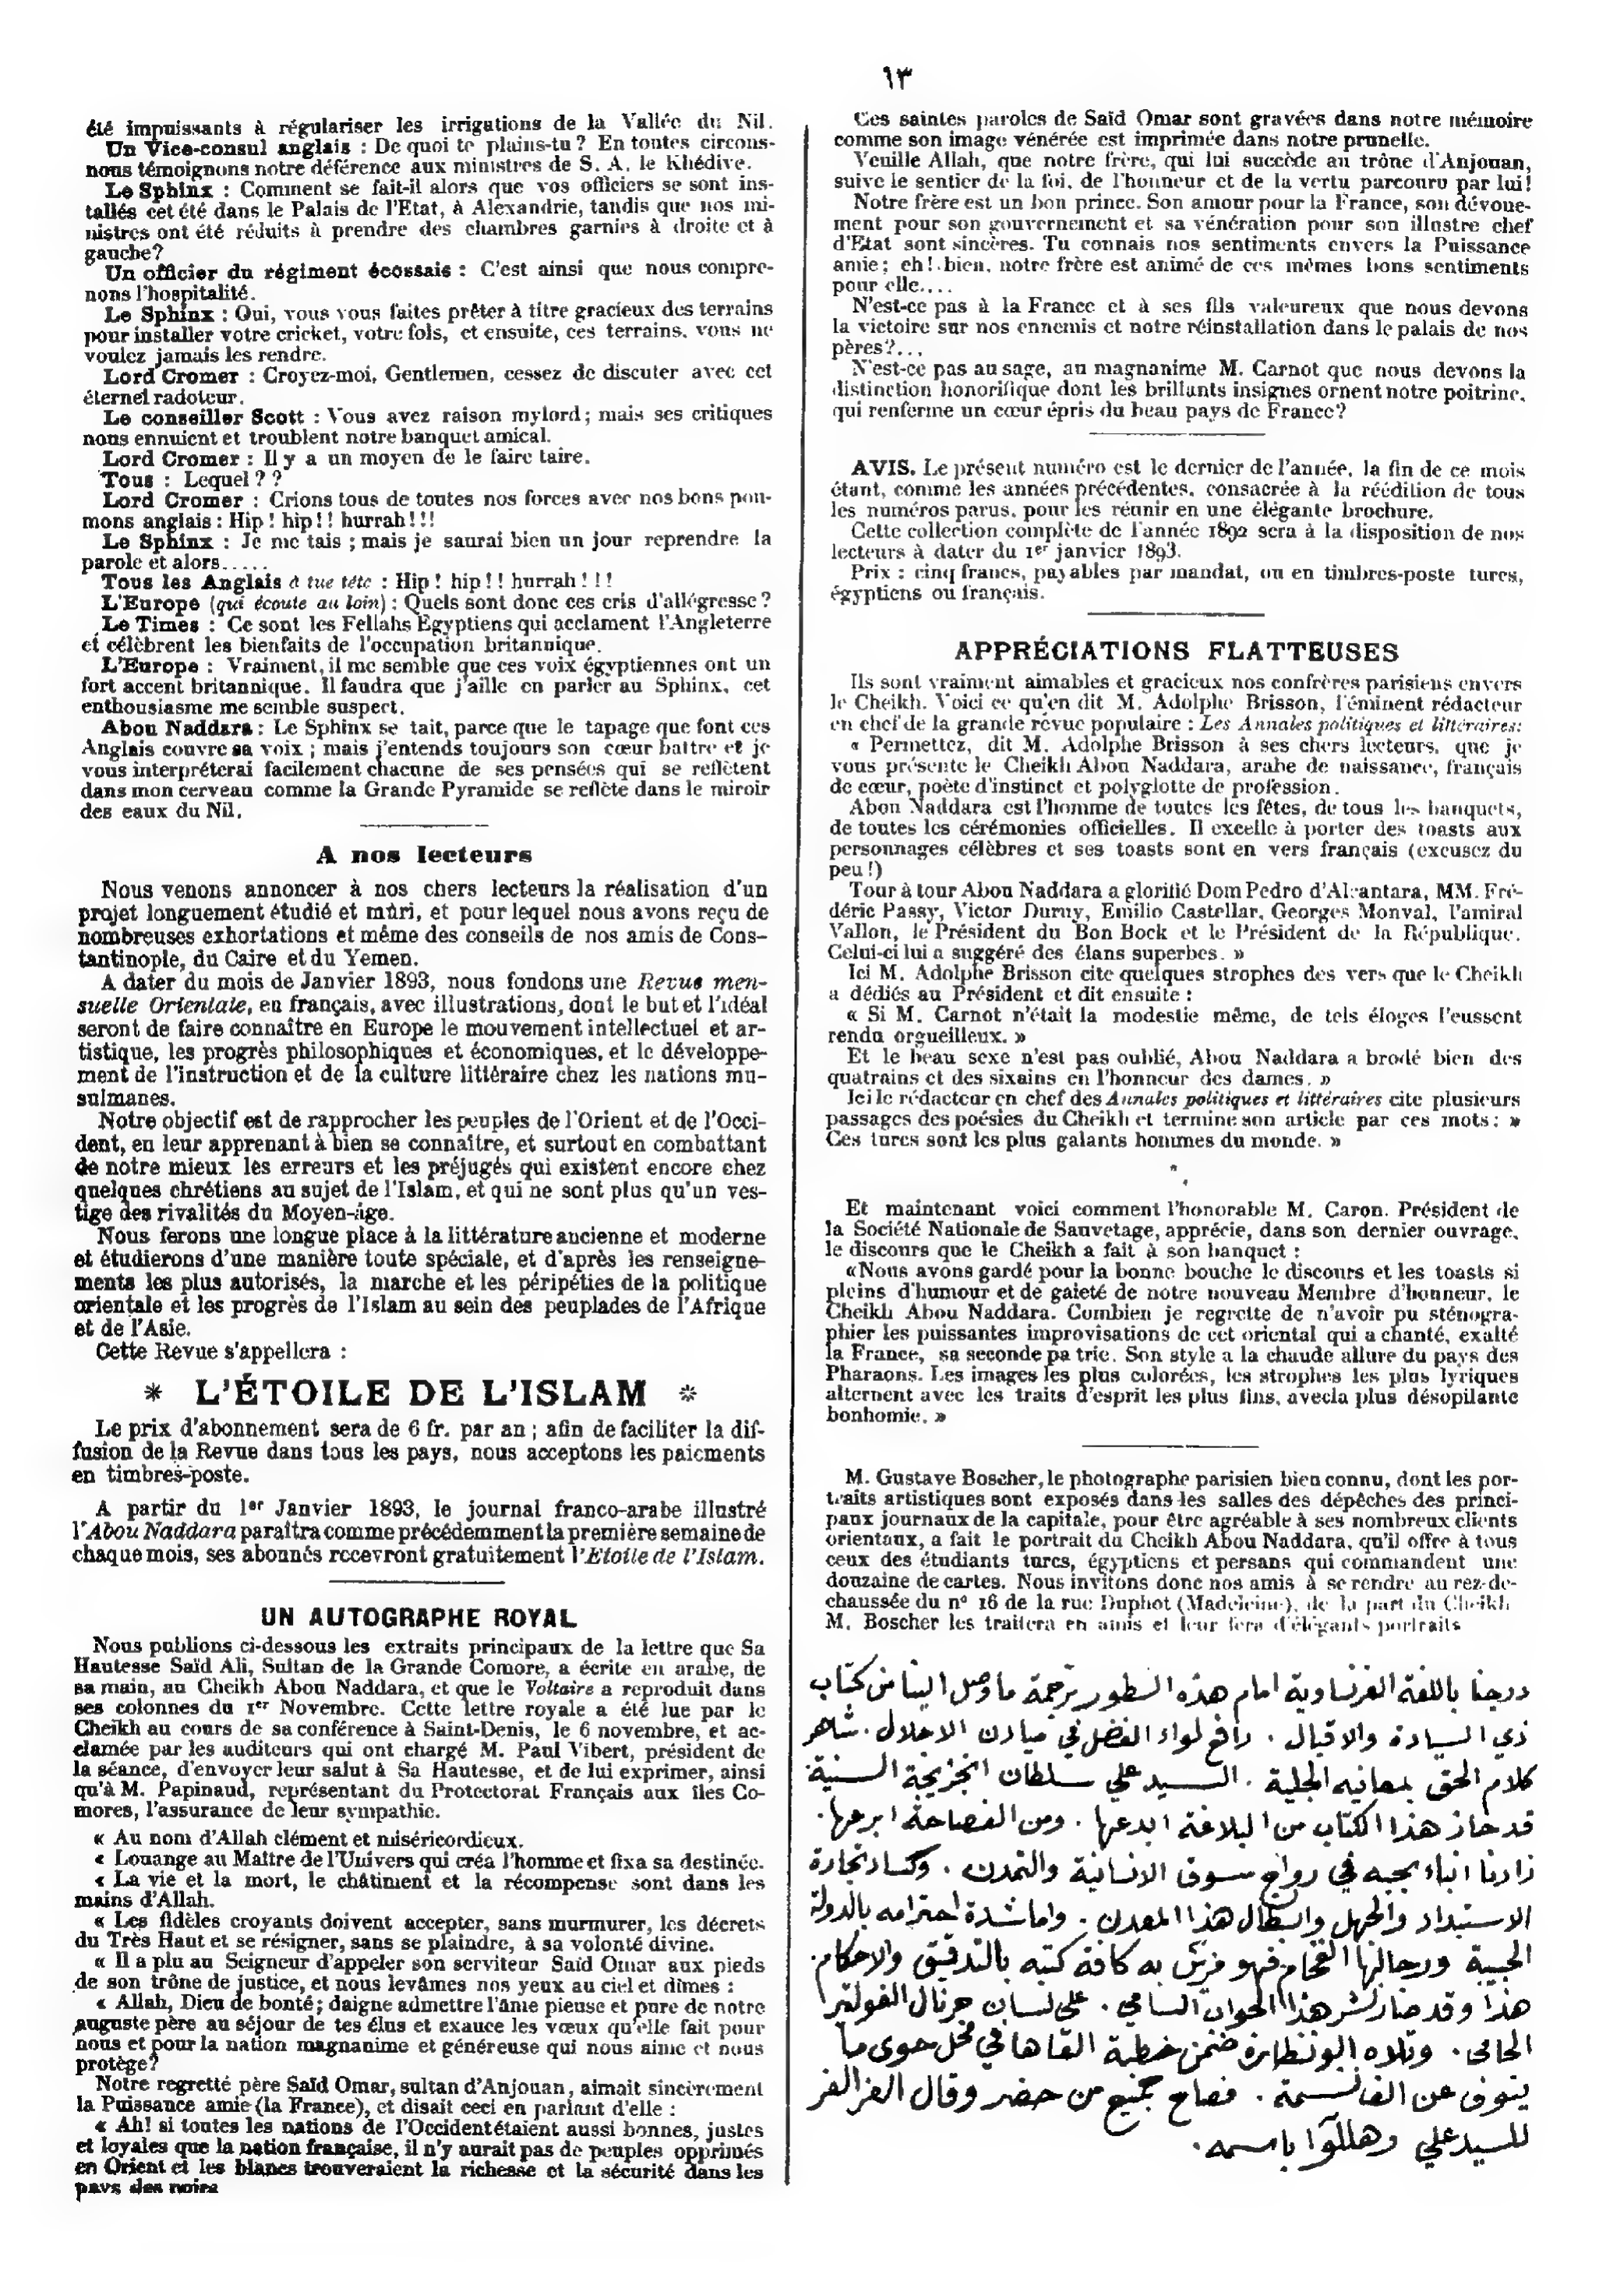 ١٣
été impuissants à régulariser les irrigations de la Vallée du Nil.
Un Vice-consul anglais : De quoi te plains-tu ? En toutes circons-
nous témoignons notre déférence aux ministres de S. A. le Khédive.
Le Sphinx : Comment se fait-il alors que vos officiers se sont ins-
tallés cet été dans le Palais de l'Etat, à Alexandrie, tandis que nos mi-
nistres ont été réduits à prendre des chambres garnies à droite et à
gauche?
Un officier du régiment écossais : C'est ainsi que nous compre-
nons l'hospitalité.
Le Sphinx : Oui, vous vous faites prêter à titre gracieux des terrains
pour installer votre cricket, votre fols, et ensuite, ces terrains. vous ne
voulez jamais les rendre.
Lord Cromer : Croyez-moi, Gentlemen, cessez de discuter avec cet
éternel radoteur.
Le conseiller Scott : Vous avez raison mylord; mais ses critiques
nous ennuient et troublent notre banquet amical.
Lord Cromer : Il y a un moyen de le faire taire.
Tous : Lequel ? ?
Lord Cromer : Crions tous de toutes nos forces avec nos bons pou-
mons anglais : Hip ! hip !! hurrah !!!
Le Sphinx : Je me tais ; mais je saurai bien un jour reprendre la
parole et alors.....
Tous les Anglais à tue tête : Hip ! hip !! hurrah ! ! !
L'Europe (qui écoute au loin) : Quels sont donc ces cris d'allégresse ?
Le Times : Ce sont les Fellahs Egyptiens qui acclament l'Angleterre
et célèbrent les bienfaits de l'occupation britannique.
L'Europe : Vraiment, il me semble que ces voix égyptiennes ont un
fort accent britannique. Il faudra que j'aille en parler au Sphinx, cet
enthousiasme me semble suspect.
Abou Naddara : Le Sphinx se tait, parce que le tapage que font ces
Anglais couvre sa voix ; mais j'entends toujours son cœur battre et je
vous interpréterai facilement chacune de ses pensées qui se reflètent
dans mon cerveau comme la Grande Pyramide se reflète dans le miroir
des eaux du Nil.
A nos lecteurs
Nous venons annoncer à nos chers lecteurs la réalisation d'un
projet longuement étudié et mûri, et pour lequel nous avons reçu de
nombreuses exhortations et même des conseils de nos amis de Cons-
tantinople, du Caire et du Yemen.
A dater du mois de Janvier 1893, nous fondons une Revue men-
suelle Orientale, en français, avec illustrations, dont le but et l'idéal
seront de faire connaître en Europe le mouvement intellectuel et ar-
tistique, les progrès philosophiques et économiques, et le développe-
ment de l'instruction et de la culture littéraire chez les nations mu-
sulmanes.
Notre objectif est de rapprocher les peuples de l'Orient et de l'Occi-
dent, en leur apprenant à bien se connaître, et surtout en combattant
de notre mieux les erreurs et les préjugés qui existent encore chez
quelques chrétiens au sujet de l'Islam, et qui ne sont plus qu'un ves-
tige des rivalités du Moyen-âge.
Nous ferons une longue place à la littérature ancienne et moderne
et étudierons d'une manière toute spéciale, et d'après les renseigne-
ments les plus autorisés, la marche et les péripéties de la politique
orientale et les progrès de l'Islam au sein des peuplades de l'Afrique
et de l'Asie.
Cette Revue s'appellera :
* L'ÉTOILE DE L'ISLAM *
Le prix d'abonnement sera de 6 fr. par an ; afin de faciliter la dif-
fusion de la Revue dans tous les pays, nous acceptons les paiements
en timbres-poste.
A partir du 1er Janvier 1893, le journal franco-arabe illustré
l'Abou Naddara paraîtra comme précédemment la première semaine de
chaque mois, ses abonnés recevront gratuitement l'Etoile de l'Islam.
UN AUTOGRAPHE ROYAL
Nous publions ci-dessous les extraits principaux de la lettre que Sa
Hautesse Saïd Ali, Sultan de la Grande Comore, a écrite en arabe, de
sa main, au Cheikh Abou Naddara, et que le Voltaire a reproduit dans
ses colonnes du 1er Novembre. Cette lettre royale a été lue par le
Cheikh au cours de sa conférence à Saint-Denis, le 6 novembre, et ac-
clamée par les auditeurs qui ont chargé M. Paul Vibert, président de
la séance, d'envoyer leur salut à Sa Hautesse, et de lui exprimer, ainsi
qu'à M. Papinaud, représentant du Protectorat Français aux îles Co-
mores, l'assurance de leur sympathie.
« Au nom d'Allah clément et miséricordieux.
« Louange au Maître de l'Univers qui créa l'homme et fixa sa destinée.
« La vie et la mort, le châtiment et la récompense sont dans les
mains d'Allah.
« Les fidèles croyants doivent accepter, sans murmurer, les décrets
du Très Haut et se résigner, sans se plaindre, à sa volonté divine.
« Il a plu au Seigneur d'appeler son serviteur Saïd Omar aux pieds
de son trône de justice, et nous levâmes nos yeux au ciel et dîmes :
« Allah, Dieu de bonté; daigne admettre l'âme pieuse et pure de notre
auguste père au séjour de tes élus et exauce les vœux qu'elle fait pour
nous et pour la nation magnanime et généreuse qui nous aime et nous
protège?
Notre regretté père Saïd Omar, sultan d'Anjouan, aimait sincèrement
la Puissance amie (la France), et disait ceci en parlant d'elle :
« Ah! si toutes les nations de l'Occident étaient aussi bonnes, justes
et loyales que la nation française, il n'y aurait pas de peuples opprimés
en Orient et les blancs trouveraient la richesse et la sécurité dans les
pays des noirs
Ces saintes paroles de Saïd Omar sont gravées dans notre mémoire
comme son image vénérée est imprimée dans notre prunelle.
Veuille Allah, que notre frère, qui lui succède au trône d'Anjouan,
suive le sentier de la foi, de l'honneur et de la vertu parcouru par lui!
Notre frère est un bon prince. Son amour pour la France, son dévoue-
ment pour son gouvernement et sa vénération pour son illustre chef
d'Etat sont sincères. Tu connais nos sentiments envers la Puissance
amie; eh! bien, notre frère est animé de ces mêmes bons sentiments
pour elle....
N'est-ce pas à la France et à ses fils valeureux que nous devons
la victoire sur nos ennemis et notre réinstallation dans le palais de nos
pères?...
N'est-ce pas au sage, au magnanime M. Carnot que nous devons la
distinction honorifique dont les brillants insignes ornent notre poitrine,
qui renferme un cœur épris du beau pays de France?
AVIS. Le présent numéro est le dernier de l'année, la fin de ce mois
étant, comme les années précédentes, consacrée à la réédition de tous
les numéros parus, pour les réunir en une élégante brochure.
Cette collection complète de l'année 1892 sera à la disposition de nos
lecteurs à dater du 1er janvier 1893.
Prix : cinq francs, payables par mandat, ou en timbres-poste turcs,
égyptiens ou français.
APPRÉCIATIONS FLATTEUSES
Ils sont vraiment aimables et gracieux nos confrères parisiens envers
le Cheikh. Voici ce qu'en dit M. Adolphe Brisson, l'éminent rédacteur
en chef de la grande révue populaire : Les Annales politiques et littéraires:
« Permettez, dit M. Adolphe Brisson à ses chers lecteurs, que je
vous présente le Cheikh Abou Naddara, arabe de naissance, français
de cœur, poète d'instinct et polyglotte de profession.
Abou Naddara est l'homme de toutes les fêtes, de tous les banquets,
de toutes les cérémonies officielles. Il excelle à porter des toasts aux
personnages célèbres et ses toasts sont en vers français (excusez du
peu !)
Tour à tour Abou Naddara a glorifié Dom Pedro d'Alcantara, MM. Fré-
déric Passy, Victor Duruy, Emilio Castellar, Georges Monval, l'amiral
Vallon, le Président du Bon Bock et le Président de la République.
Celui-ci lui a suggéré des élans superbes. »
Ici M. Adolphe Brisson cite quelques strophes des vers que le Cheikh
a dédiés au Président et dit ensuite :
« Si M. Carnot n'était la modestie même, de tels éloges l'eussent
rendu orgueilleux. »
Et le beau sexe n'est pas oublié, Abou Naddara a brodé bien des
quatrains et des sixains en l'honneur des dames. »
Ici le rédacteur en chef des Annales politiques et littéraires cite plusieurs
passages des poésies du Cheikh et termine son article par ces mots: »
Ces turcs sont les plus galants hommes du monde. »
Et maintenant voici comment l'honorable M. Caron. Président de
la Société Nationale de Sauvetage, apprécie, dans son dernier ouvrage,
le discours que le Cheikh a fait à son banquet :
«Nous avons gardé pour la bonne bouche le discours et les toasts si
pleins d'humour et de gaieté de notre nouveau Membre d'honneur, le
Cheikh Abou Naddara. Combien je regrette de n'avoir pu sténogra-
phier les puissantes improvisations de cet oriental qui a chanté, exalté
la France, sa seconde patrie. Son style a la chaude allure du pays des
Pharaons. Les images les plus colorées, les strophes les plus lyriques
alternent avec les traits d'esprit les plus fins, avec la plus désopilante
bonhomie. »
M. Gustave Boscher, le photographe parisien bien connu, dont les por-
traits artistiques sont exposés dans les salles des dépêches des princi-
paux journaux de la capitale, pour être agréable à ses nombreux clients
orientaux, a fait le portrait du Cheikh Abou Naddara, qu'il offre à tous
ceux des étudiants turcs, égyptiens et persans qui commandent une
douzaine de cartes. Nous invitons donc nos amis à se rendre au rez-de-
chaussée du nº 16 de la rue Duphot (Madeleine), de la part du Cheikh
M. Boscher les traitera en amis et leur fera d'élégants portraits
درجنا باللغة الفرنساوية امام هذه السطور ترجمة ما وصل الينا من كتاب
ذي السيادة والاقبال . رافع لواء الفضل في ميادن الاجلال . شاهر
كلام الحق بمعانيه الجلية . السيد علي سلطان انجزيجة السنية
قد حاز هذا الكتاب من البلاغة ابدعها . ومن الفصاحة ابرعها .
زادنا انباء بحبه في رواج سوق الانسانية والتمدن . وكساد تجارة
الاستبداد والجهل وابطال هذا المعدن . واما شدة احترامه بالدولة
الحبيبة ورجالها الفخام فهو مزين به كافة كتبه بالتدقيق والاحكام .
هذا وقد صار نشر هذا الجواب السامي . على لسان جرنال الفولتير
الحامي . وتلاه ابو نظارة ضمن خطبة القاها في محل حوى ما
ينوف عن الف نسمة . فصاح جميع من حضر وقال العز العز
للسيد علي وهللوا باسمه .